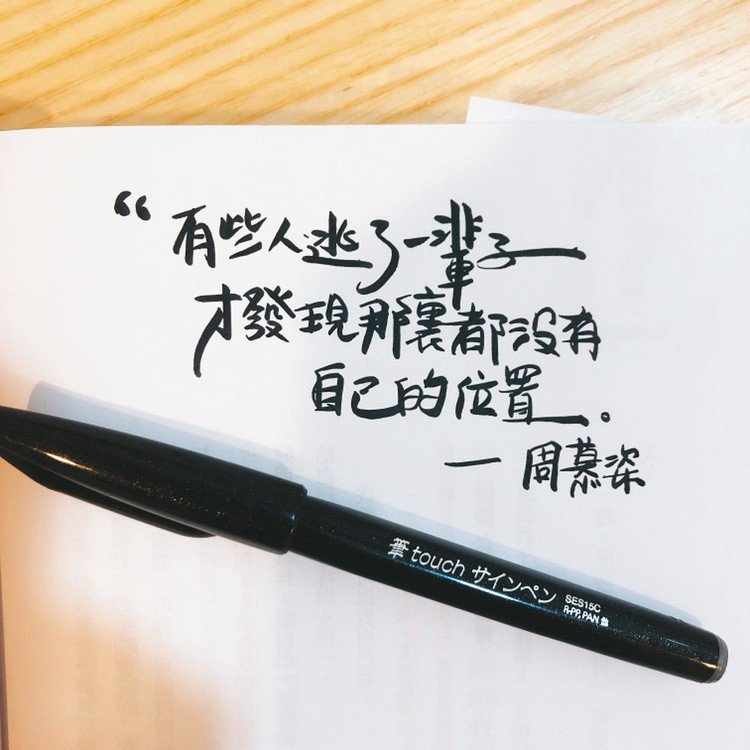 “有些人逃了一輩子
才發現那裏都沒有
自己的位置。
— 周慕姿
筆touch サインペン
SES15C
R-PP, PAN